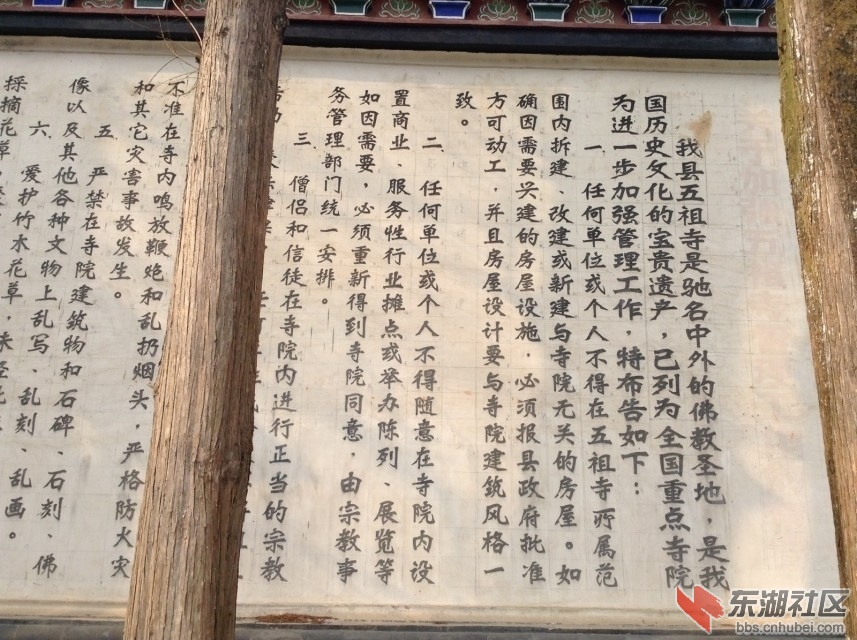 我县五祖寺是驰名中外的佛教圣地，是我
国历史文化的宝贵遗产，已列为全国重点寺院
为进一步加强管理工作，特布告如下：
一、任何单位或个人不得在五祖寺所属范
围内拆建、改建或新建与寺院无关的房屋。如
确因需要兴建的房屋设施，必须报县政府批准
方可动工，并且房屋设计要与寺院建筑风格一
致。
二、任何单位或个人不得随意在寺院内设
置商业、服务性行业摊点或举办陈列、展览等
如因需要，必须重新得到寺院同意，由宗教事
务管理部门统一安排。
三、僧侣和信徒在寺院内进行正当的宗教
不准在寺内鸣放鞭炮和乱扔烟头，严格防火灾
和其它灾害事故发生。
五、严禁在寺院建筑物和石碑、石刻、佛
像以及其他各种文物上乱写、乱刻、乱画。
六、爱护竹木花草，未经
採摘花草
东湖社区
bbs.cnhubei.com